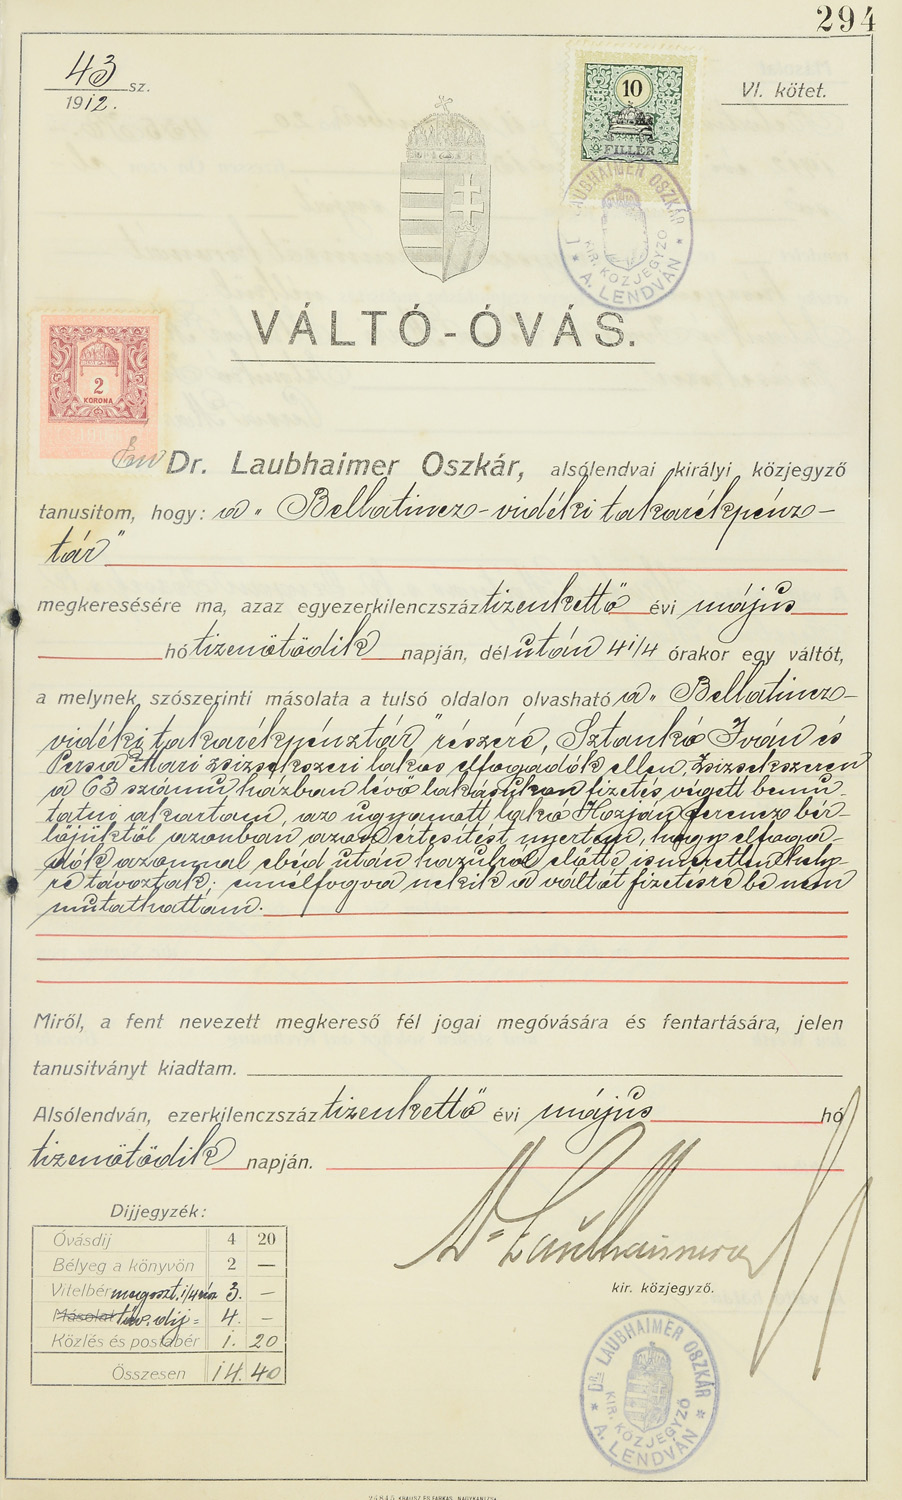 294
43 sz.
1912.
VI. kötet.
10
FILLÉR
LAUBHAIMER OSZKÁR
KIR. KÖZJEGYZŐ
* A. LENDVÁN *
VÁLTÓ-ÓVÁS.
2
KORONA
Én Dr. Laubhaimer Oszkár, alsólendvai királyi közjegyző
tanusitom, hogy: a „Bellatincz-vidéki takarékpénz-
tár"
megkeresésére ma, azaz egyezerkilenczszáz tizenkettő évi május
hó tizenötödik napján, délután 4 1/4 órakor egy váltót,
a melynek szószerinti másolata a tulsó oldalon olvasható a „Bellatincz-
vidéki takarékpénztár" részére, Sztankó Iván és
Persa Mari zsizsekszeri lakos elfogadók ellen, Zsizsekszeren
a 63 számu házban lévő lakásukon fizetés végett bemu-
tatni akartam, az ugyanott lakó Hozján Ferencz bér-
lőjüktől azonban azon értesitést nyertem, hogy elfoga-
dók azonnal ebéd után hazulról előtte ismeretlen hely-
re távoztak; ennélfogva nekik a váltót fizetésre be nem
mutathattam.
Miről, a fent nevezett megkereső fél jogai megóvására és fentartására, jelen
tanusitványt kiadtam.
Alsólendván, ezerkilenczszáz tizenkettő évi május hó
tizenötödik napján.
Dr Laubhaimer
kir. közjegyző.
Dijjegyzék:
Óvásdij 4 20
Bélyeg a könyvön 2 —
Vitelbér megoszt. 1/4 3. —
Másolat táv. dij = 4. —
Közlés és postabér 1. 20
Összesen 14. 40
DR. LAUBHAIMER OSZKÁR
KIR. KÖZJEGYZŐ
* A. LENDVÁN *
KRAUSZ ÉS FARKAS, NAGYKANIZSA